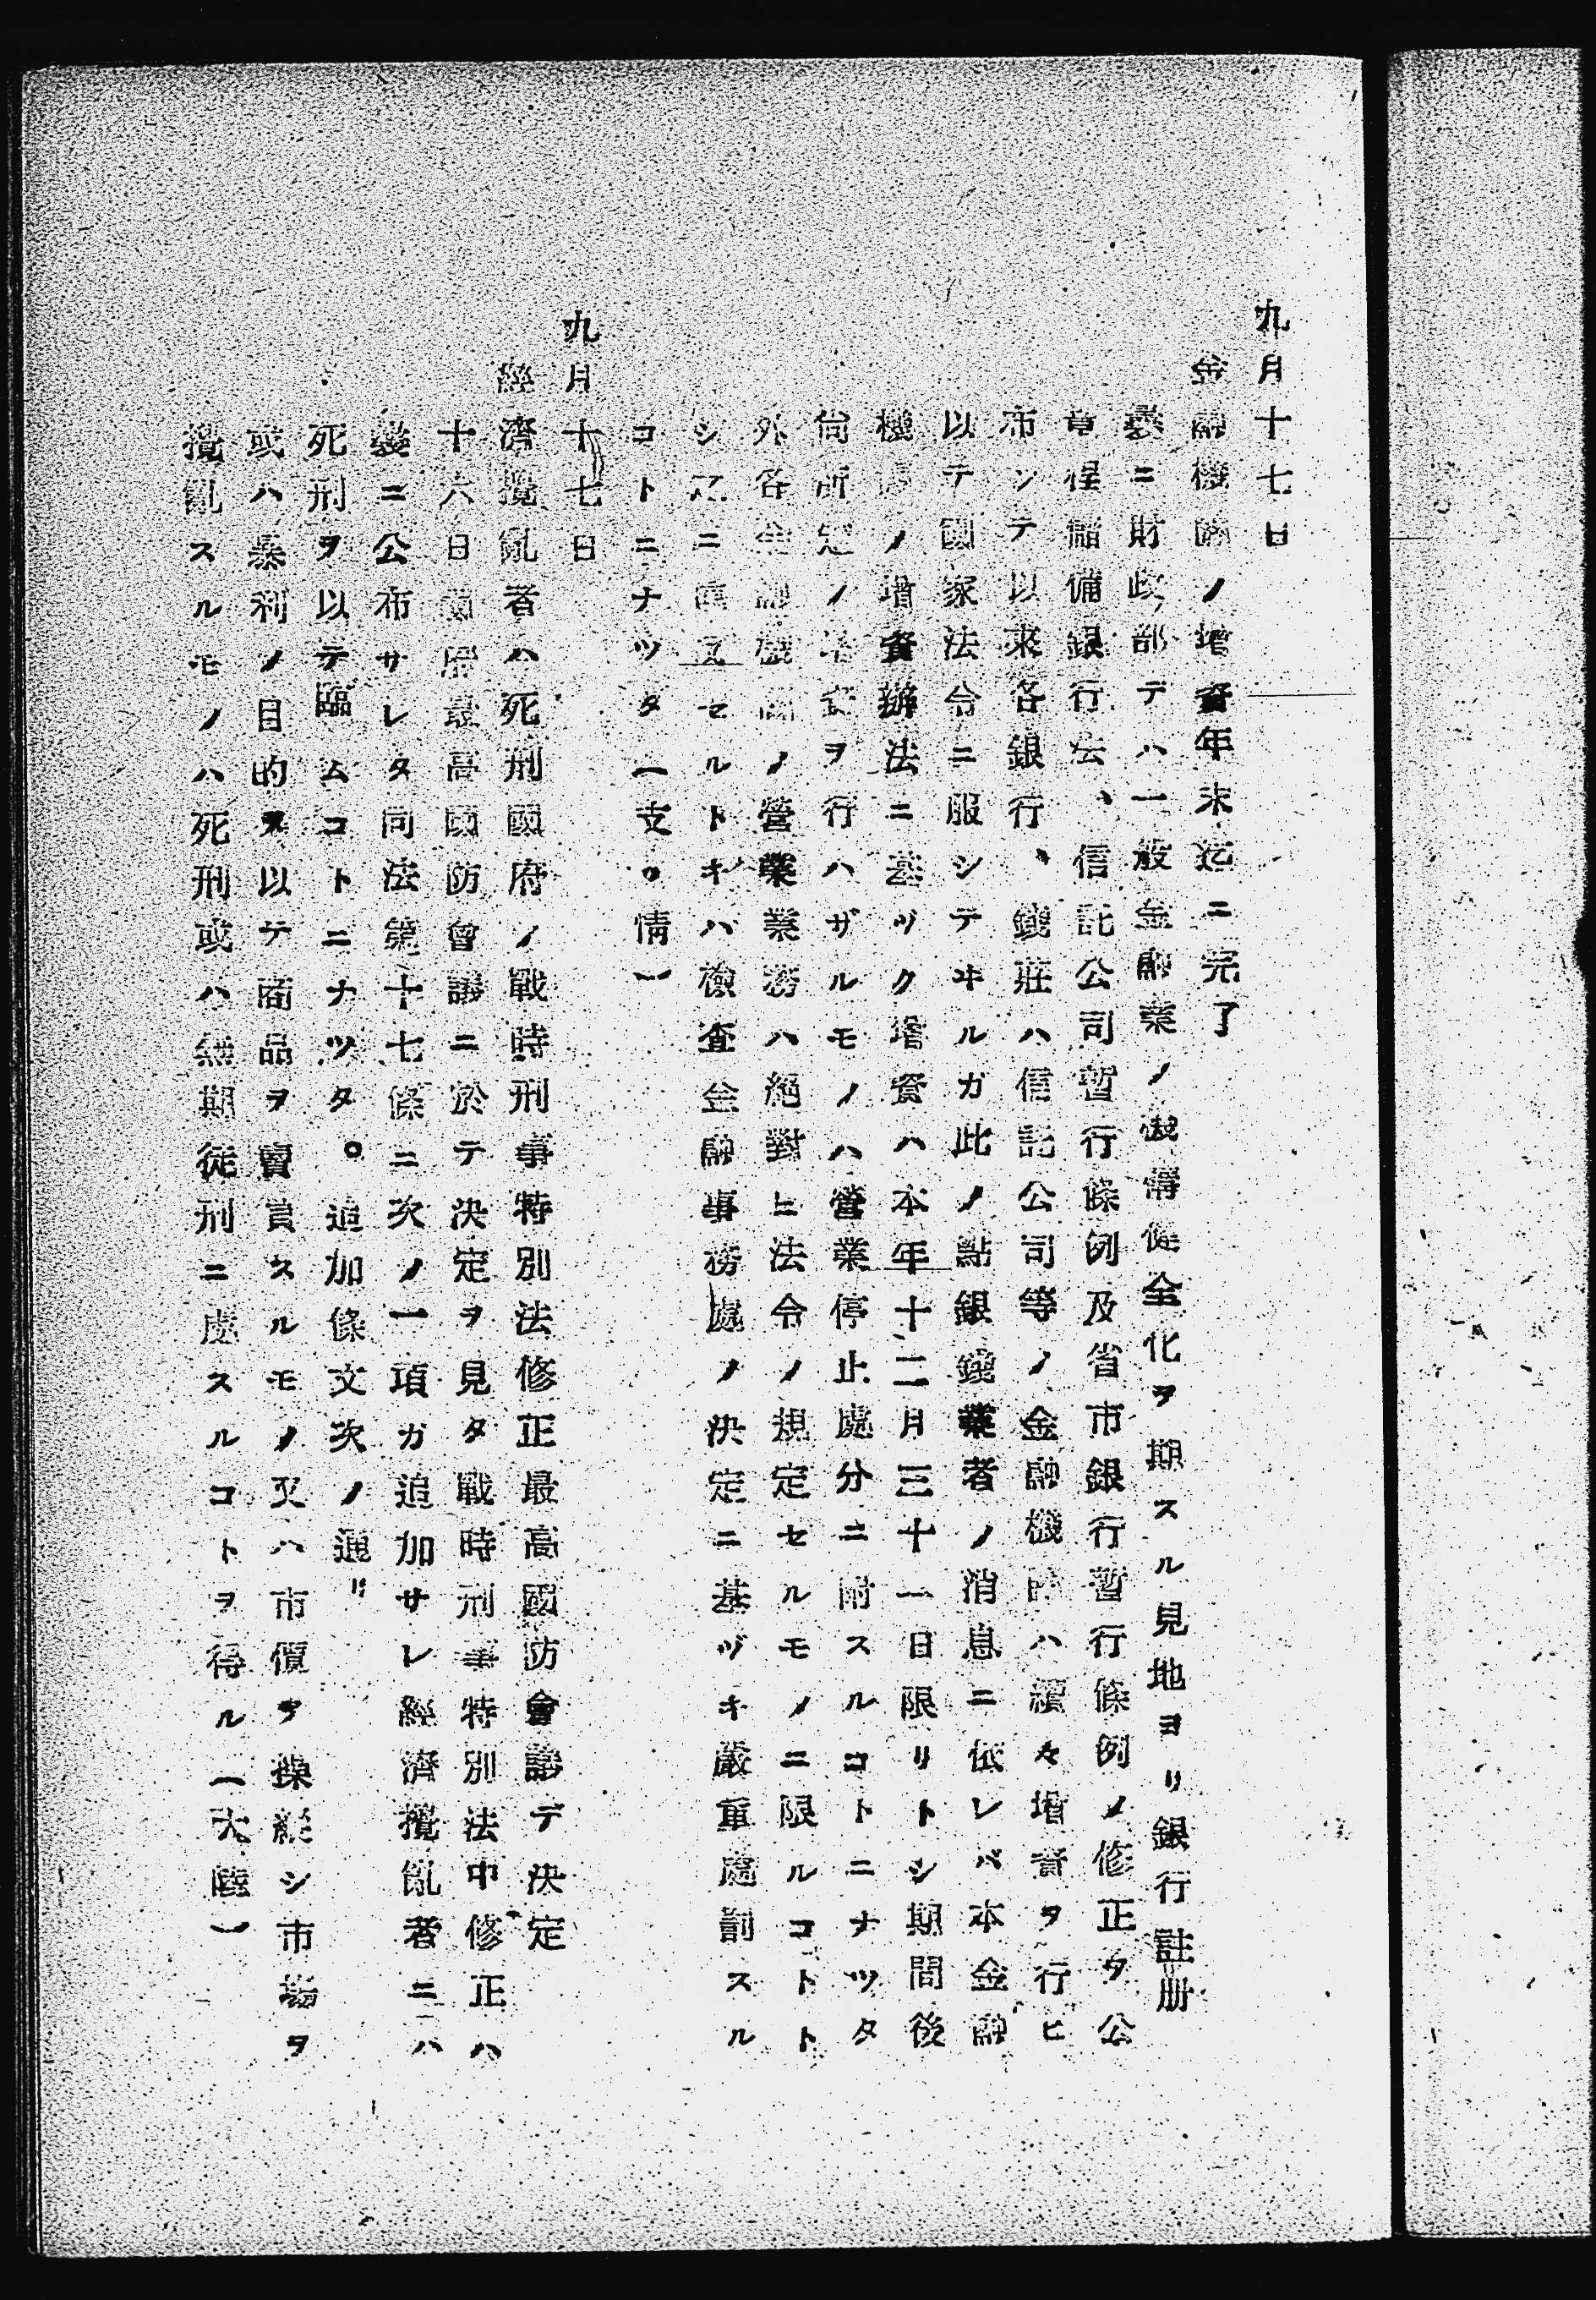 九月十七日
金融機關ノ增資年末迄ニ完了
曩ニ財政部デハ一般金融業ノ機構健全化ヲ期スル見地ヨリ銀行註册
章程儲備銀行法、信託公司暫行條例及省市銀行暫行條例ノ修正ヲ公
布シテ以來各銀行、錢莊ハ信託公司等ノ金融機關ハ續々增資ヲ行ヒ
以テ國家法令ニ服シテヰルガ此ノ點銀錢業者ノ消息ニ依レバ本金融
機關ノ增資辦法ニ基ヅク增資ハ本年十二月三十一日限リトシ期間後
尙所定ノ增資ヲ行ハザルモノハ營業停止處分ニ附スルコトニナツタ
外各金融機關ノ營業業務ハ絕對ニ法令ノ規定セルモノニ限ルコトト
シ之ニ違反セルトキハ檢査金融事務處ノ決定ニ基ヅキ嚴重處罰スル
コトニナツタ（支。情）
九月十七日
經濟攪亂者ハ死刑國府ノ戰時刑事特別法修正最高國防會議デ決定
十六日國府最高國防會議ニ於テ決定ヲ見タ戰時刑事特別法中修正ハ
曩ニ公布サレタ同法第十七條ニ次ノ一項ガ追加サレ經濟攪亂者ニハ
死刑ヲ以テ臨ムコトニナツタ。追加條文次ノ通リ
或ハ暴利ノ目的ヲ以テ商品ヲ賣買スルモノ又ハ市價ヲ操縱シ市場ヲ
攪亂スルモノハ死刑或ハ無期徒刑ニ處スルコトヲ得ル（大陸）